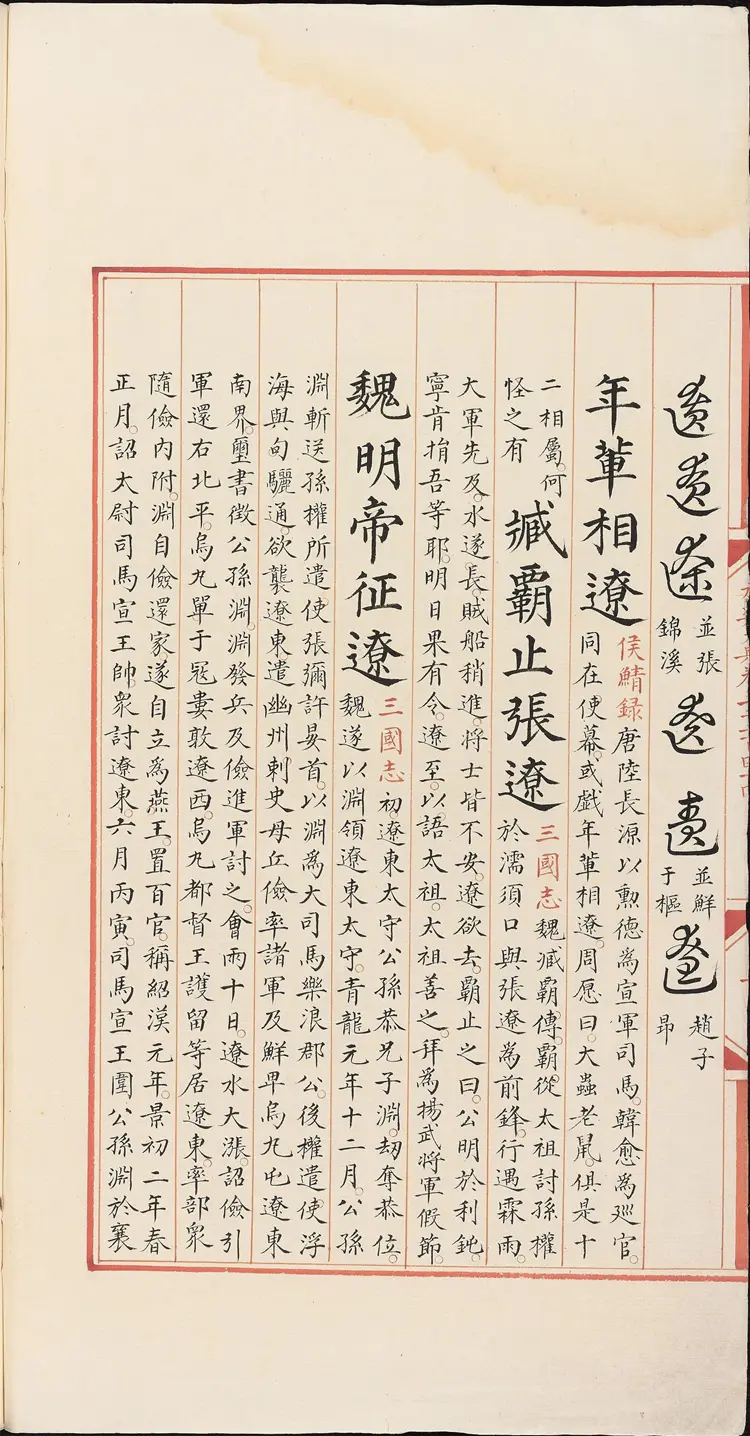 遼遼遼 並張
錦溪
遼 遼 並鮮
于樞
遼 趙子
昂
年軰相遼 侯鯖録 唐陸長源以勲德為宣軍司馬。韓愈為廵官。
同在使幕。或戯年軰相遼。周愿曰。大蟲老鼠。俱是十
二相屬。何
怪之有
臧霸止張遼 三國志 魏臧霸。傳。霸從太祖討孫權
於濡須口與張遼為前鋒。行遇霖雨。
大軍先及。水遂長。賊船稍進。將士皆不安。遼欲去。霸止之曰。公明於利鈍。
寧肯捐吾等耶。明日果有令。遼至。以語太祖。太祖善之。拜為揚武將軍假節。
魏明帝征遼 三國志 初。遼東太守公孫恭兄子淵。刼奪恭位。
魏遂以淵領遼東太守。青龍元年十二月。公孫
淵斬送孫權所遣使張彌許晏首。以淵為大司馬樂浪郡公。後權遣使浮
海與句驪通。欲襲遼東遣幽州剌史毋丘儉率諸軍及鮮卑烏丸屯遼東
南界。璽書徵公孫淵。淵發兵及儉進軍討之。會雨十日。遼水大漲。詔儉引
軍還右北平。烏丸單于冦婁敦遼西。烏丸都督王護留等居遼東。率部衆
隨儉內附。淵自儉還家。遂自立為燕王。置百官。稱紹漢元年。景初二年春
正月。詔太尉司馬宣王帥衆討遼東。六月丙寅。司馬宣王圍公孫淵於襄